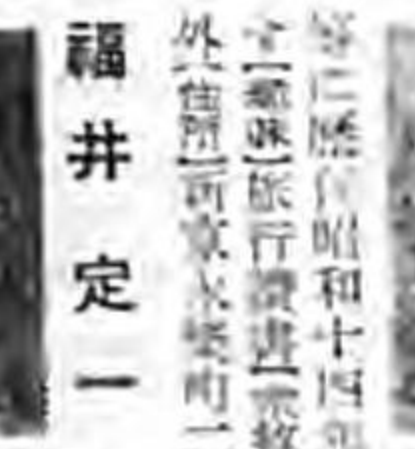 等に歴任昭和十四年
【趣味】旅行讀書【宗教
外【住所】新京永樂町一
福井定一